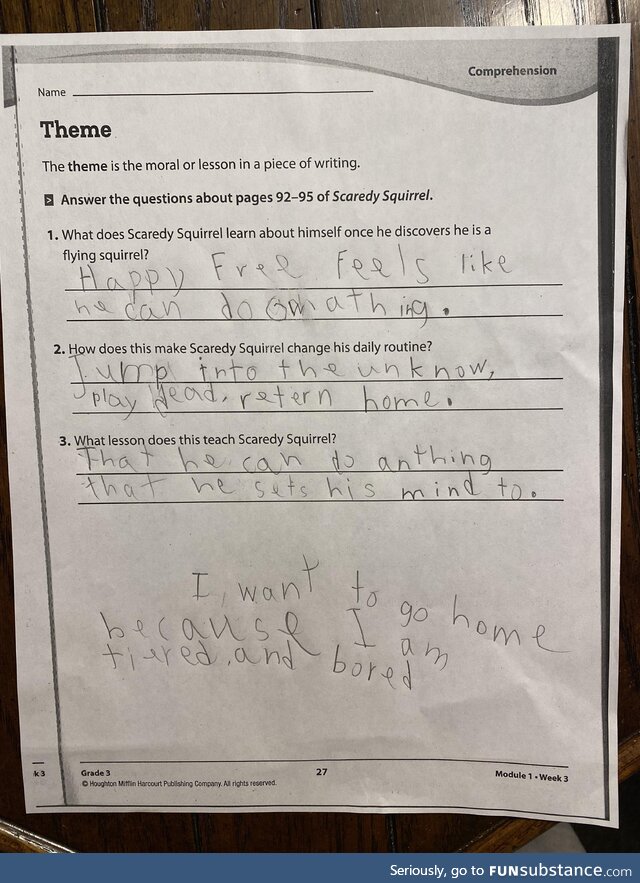 Comprehension
Name
Theme
The theme is the moral or lesson in a piece of writing.
Answer the questions about pages 92–95 of Scaredy Squirrel.
1. What does Scaredy Squirrel learn about himself once he discovers he is a
flying squirrel?
Happy Free Feels like
he can do
2. How does this make Scaredy Squirrel change his daily routine?
Jump into the unknow,
play dead, retern home.
3. What lesson does this teach Scaredy Squirrel?
That he can do anthing
that he sets his mind to.
I want to go home
because I am
tiered and bored
k 3
Grade 3
© Houghton Mifflin Harcourt Publishing Company. All rights reserved.
27
Module 1 • Week 3
Seriously, go to FUNsubstance.com